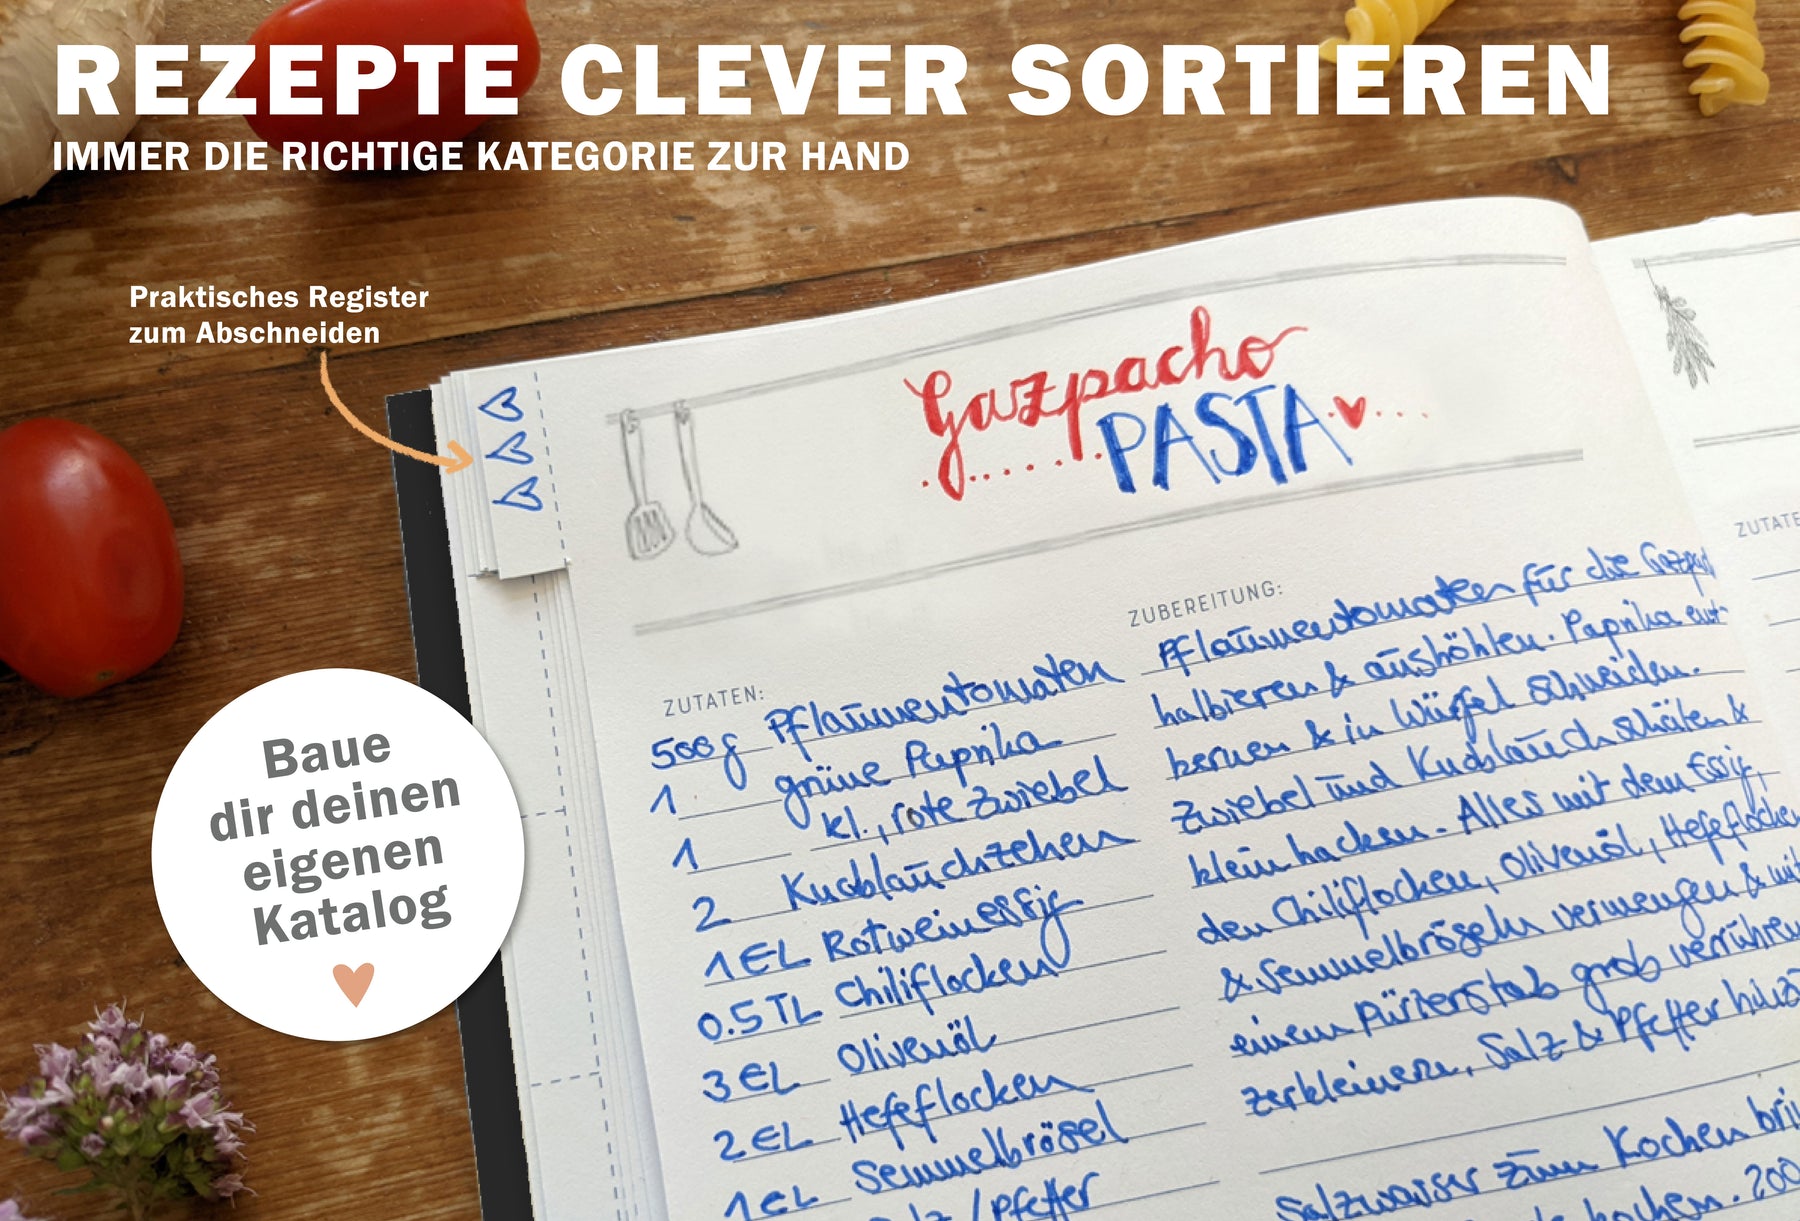 REZEPTE CLEVER SORTIEREN
IMMER DIE RICHTIGE KATEGORIE ZUR HAND
Praktisches Register
zum Abschneiden
Baue
dir deinen
eigenen
Katalog
Gazpacho
PASTA
ZUTATEN:
500g Pflaumentomaten
1 grüne Paprika
1 kl., rote Zwiebel
2 Knoblauchzehen
1 EL Rotweinessig
0.5 TL Chiliflocken
3 EL Olivenöl
2 EL Hefeflocken
1 EL Semmelbrösel
/Pfeffer
ZUBEREITUNG:
Pflaumentomaten für die
halbieren & aushöhlen. Paprika ent-
kernen & in Würfel schneiden.
Zwiebel und Knoblauch schälen &
klein hacken. Alles mit dem Essig,
den Chiliflocken, Olivenöl, Hefeflocken
& Semmelbröseln vermengen & mit
einem Pürierstab grob verrühren
zerkleinern, Salz & Pfeffer
Salzwasser zum Kochen
kochen. 200
ZUTATE